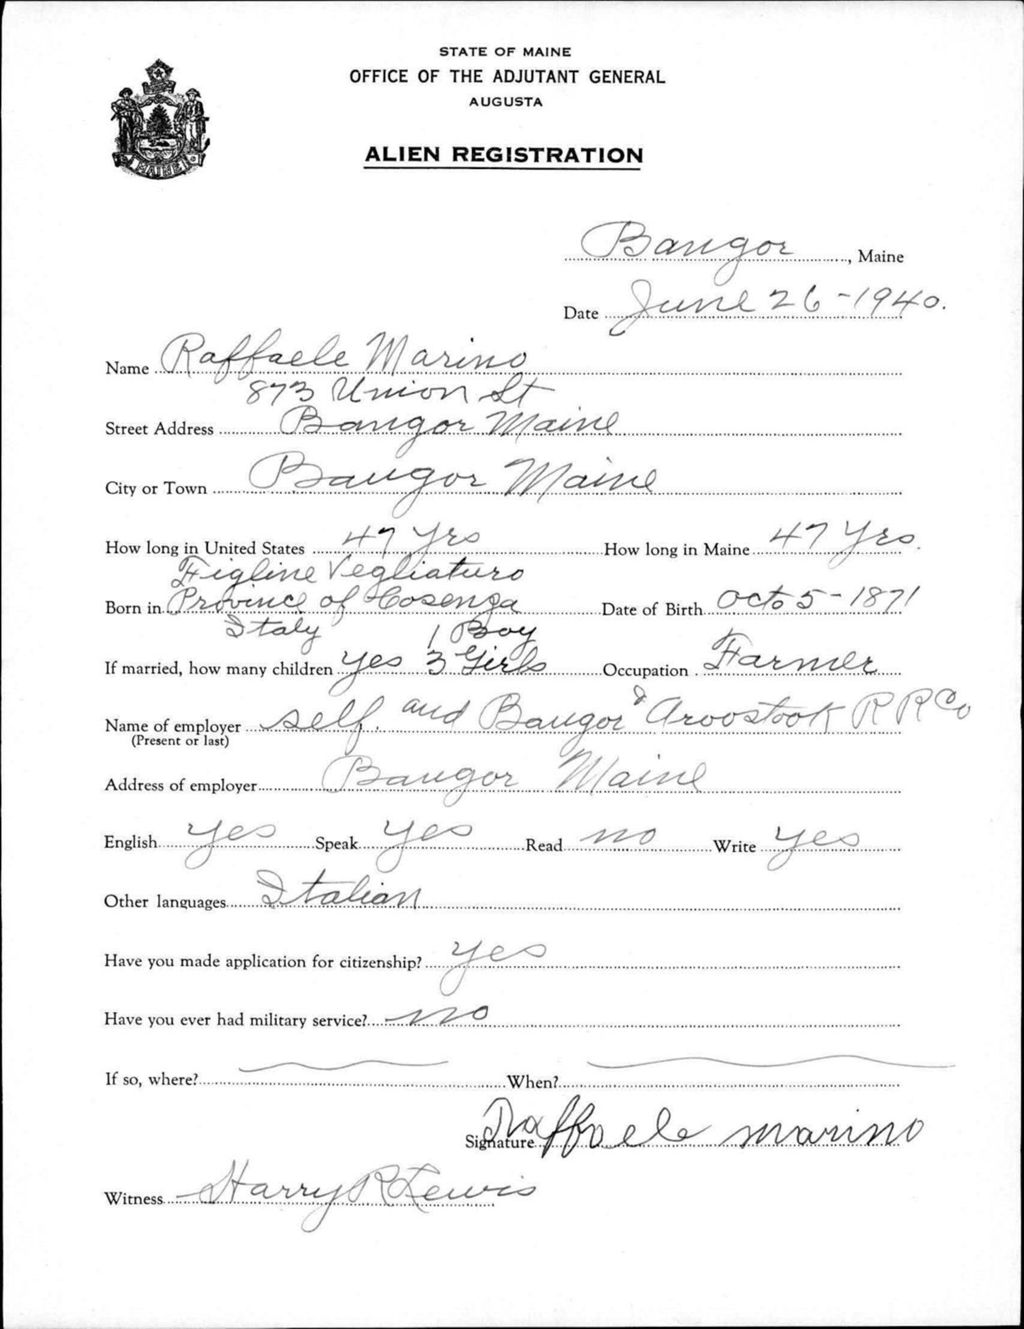 STATE OF MAINE
OFFICE OF THE ADJUTANT GENERAL
AUGUSTA
ALIEN REGISTRATION
MAINE
Bangor, Maine
Date June 26-1940.
Name Raffaele Marino
873 Union St
Street Address Bangor Maine
City or Town Bangor Maine
How long in United States 47 Yrs How long in Maine 47 Yrs.
Figline Vegliaturo
Born in Province of Cosenza Date of Birth Oct 5-1871
Italy 1 Boy
If married, how many children yes 3 Girls Occupation Farmer
Name of employer self. and Bangor & Aroostook R R Co
(Present or last)
Address of employer Bangor Maine
English yes Speak yes Read no Write yes
Other languages Italian
Have you made application for citizenship? yes
Have you ever had military service? no
If so, where? When?
Signature Raffaele marino
Witness Harry R Lewis